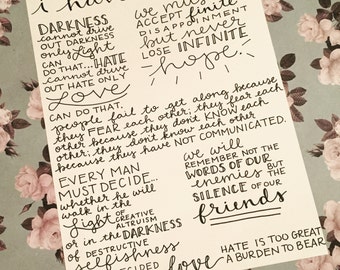 i have
DARKNESS
cannot drive
OUT DARKNESS
only Light
CAN
DO THAT... HATE
cannot drive
OUT HATE ONLY
Love
CAN DO THAT.
we must
ACCEPT finite
DISAPPOINTMENT
but never
LOSE INFINITE
hope.
people fail to get along because
they FEAR each other; they fear each
other because they don't KNOW each
other; they don't know each other
because they have NOT COMMUNICATED.
EVERY MAN
MUST DECIDE
whether he will
walk in the
Light OF CREATIVE ALTRUISM
or in the DARKNESS
OF DESTRUCTIVE
selfishness
we will
REMEMBER NOT THE
WORDS OF OUR
enemies BUT THE
SILENCE OF OUR
friends
DECIDED
love
HATE IS TOO GREAT
A BURDEN TO BEAR